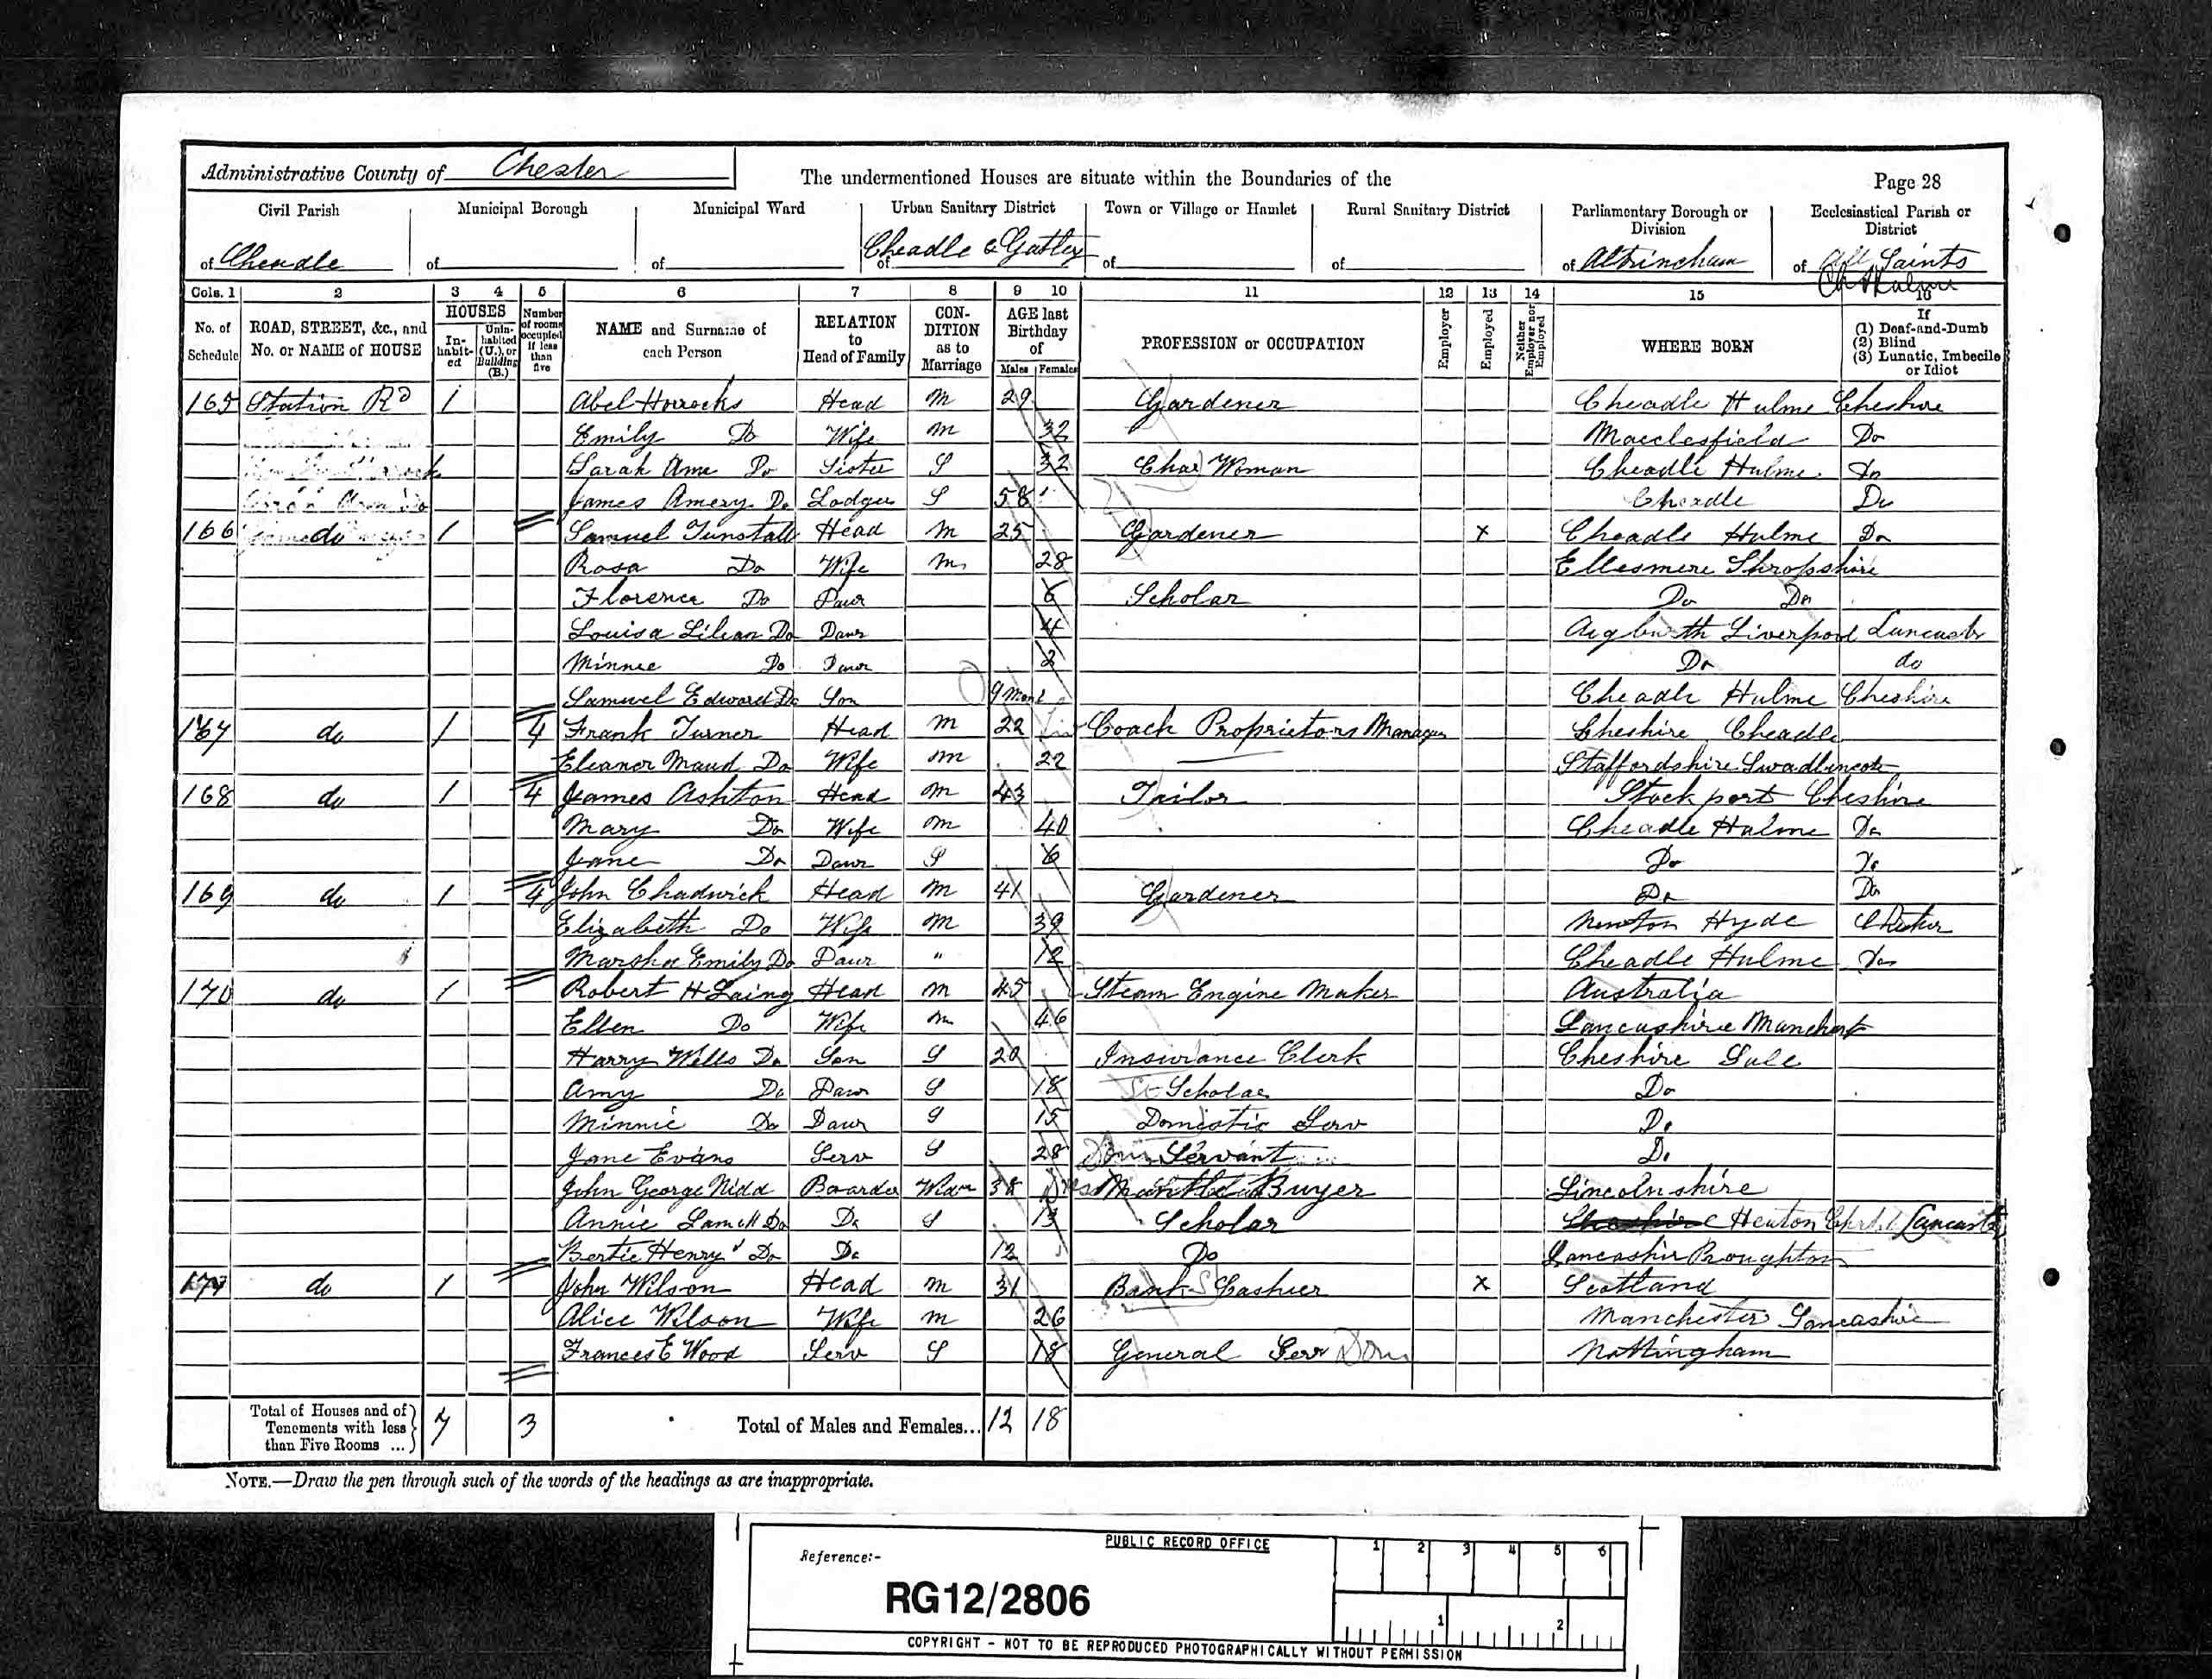 Administrative County of Chester
The undermentioned Houses are situate within the Boundaries of the
Page 28
Civil Parish
Municipal Borough
Municipal Ward
Urban Sanitary District
Town or Village or Hamlet
Rural Sanitary District
Parliamentary Borough or Division
Ecclesiastical Parish or District
of Cheadle
of
of
of Cheadle & Gatley
of
of
of Altrincham
of All Saints Ch Hulme
Cols. 1 2 3 4 5 6 7 8 9 10 11 12 13 14 15 16
No. of Schedule
ROAD, STREET, &c., and No. or NAME of HOUSE
HOUSES
In-habit-ed
Unin-habited (U.), or Building (B.)
Number of rooms occupied if less than five
NAME and Surname of each Person
RELATION to Head of Family
CON-DITION as to Marriage
AGE last Birthday of
Males Females
PROFESSION or OCCUPATION
Employer
Employed
Neither Employer nor Employed
WHERE BORN
If
(1) Deaf-and-Dumb
(2) Blind
(3) Lunatic, Imbecile or Idiot
165 Station Rd 1 Abel Horrocks Head M 29 Gardener Cheadle Hulme Cheshire
Emily Do Wife M 32 Macclesfield Do
Sarah Ann Do Sister S 32 Char Woman Cheadle Hulme Do
James Amery Do Lodger S 58 Cheadle Do
166 do 1 Samuel Tunstall Head M 25 Gardener x Cheadle Hulme Do
Rosa Do Wife M 28 Ellesmere Shropshire
Florence Do Daur 6 Scholar Do Do
Louisa Lilian Do Daur 4 Aigburth Liverpool Lancaster
Minnie Do Daur 2 Do do
Samuel Edward Do Son 9 Mon Cheadle Hulme Cheshire
167 do 1 4 Frank Turner Head M 22 Coach Proprietors Manager Cheshire Cheadle
Eleanor Maud Do Wife M 22 Staffordshire Swadlincote
168 do 1 4 James Ashton Head M 43 Tailor Stockport Cheshire
Mary Do Wife M 40 Cheadle Hulme Do
Jane Do Daur S 6 Do Do
169 do 1 4 John Chadwick Head M 41 Gardener Do Do
Elizabeth Do Wife M 39 Newton Hyde Chester
Marsha Emily Do Daur " 12 Cheadle Hulme Do
170 do 1 Robert H Laing Head M 45 Steam Engine Maker Australia
Ellen Do Wife M 46 Lancashire Manchest
Harry Wells Do Son S 20 Insurance Clerk Cheshire Sale
Amy Do Daur S 18 Scholar Do
Minnie Do Daur S 15 Domestic Serv Do
Jane Evans Serv S 28 Dom Servant Do
John George Nidd Boarder Widr 38 Mantle Buyer Lincolnshire
Annie Do Do S 13 Scholar Cheshire Heaton Lancaster
Bertie Henry Do Do 12 Do Lancashire Broughton
171 do 1 John Wilson Head M 31 Bank Cashier x Scotland
Alice Wilson Wife M 26 Manchester Lancashire
Frances E Wood Serv S 18 General Serv Dom Nottingham
Total of Houses and of Tenements with less than Five Rooms ... 7 3 Total of Males and Females... 12 18
NOTE.—Draw the pen through such of the words of the headings as are inappropriate.
PUBLIC RECORD OFFICE
Reference:-
RG12/2806
1 2 3 4 5 6
1 2
COPYRIGHT - NOT TO BE REPRODUCED PHOTOGRAPHICALLY WITHOUT PERMISSION